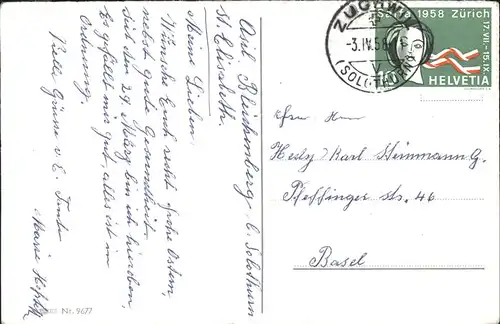 Asyl Bleichenberg b. Solothurn
St. Elisabeth.
Meine Lieben
Wünsche Euch recht frohe Ostern,
nebst guter Gesundheit.
Seit den 29. März bin ich hier oben,
Es gefällt mir gut, alles ist in
Ordnung.
Viele Grüsse v. E. Tante
Marie
Nr. 9677
ZUCHWIL
-3.IV.58
(SOLOTHURN)
Saffa 1958 Zürich
17.VII.-15.IX.
HELVETIA
Hedy/Karl Steinmann G.
Pfeffinger Str. 46
Basel